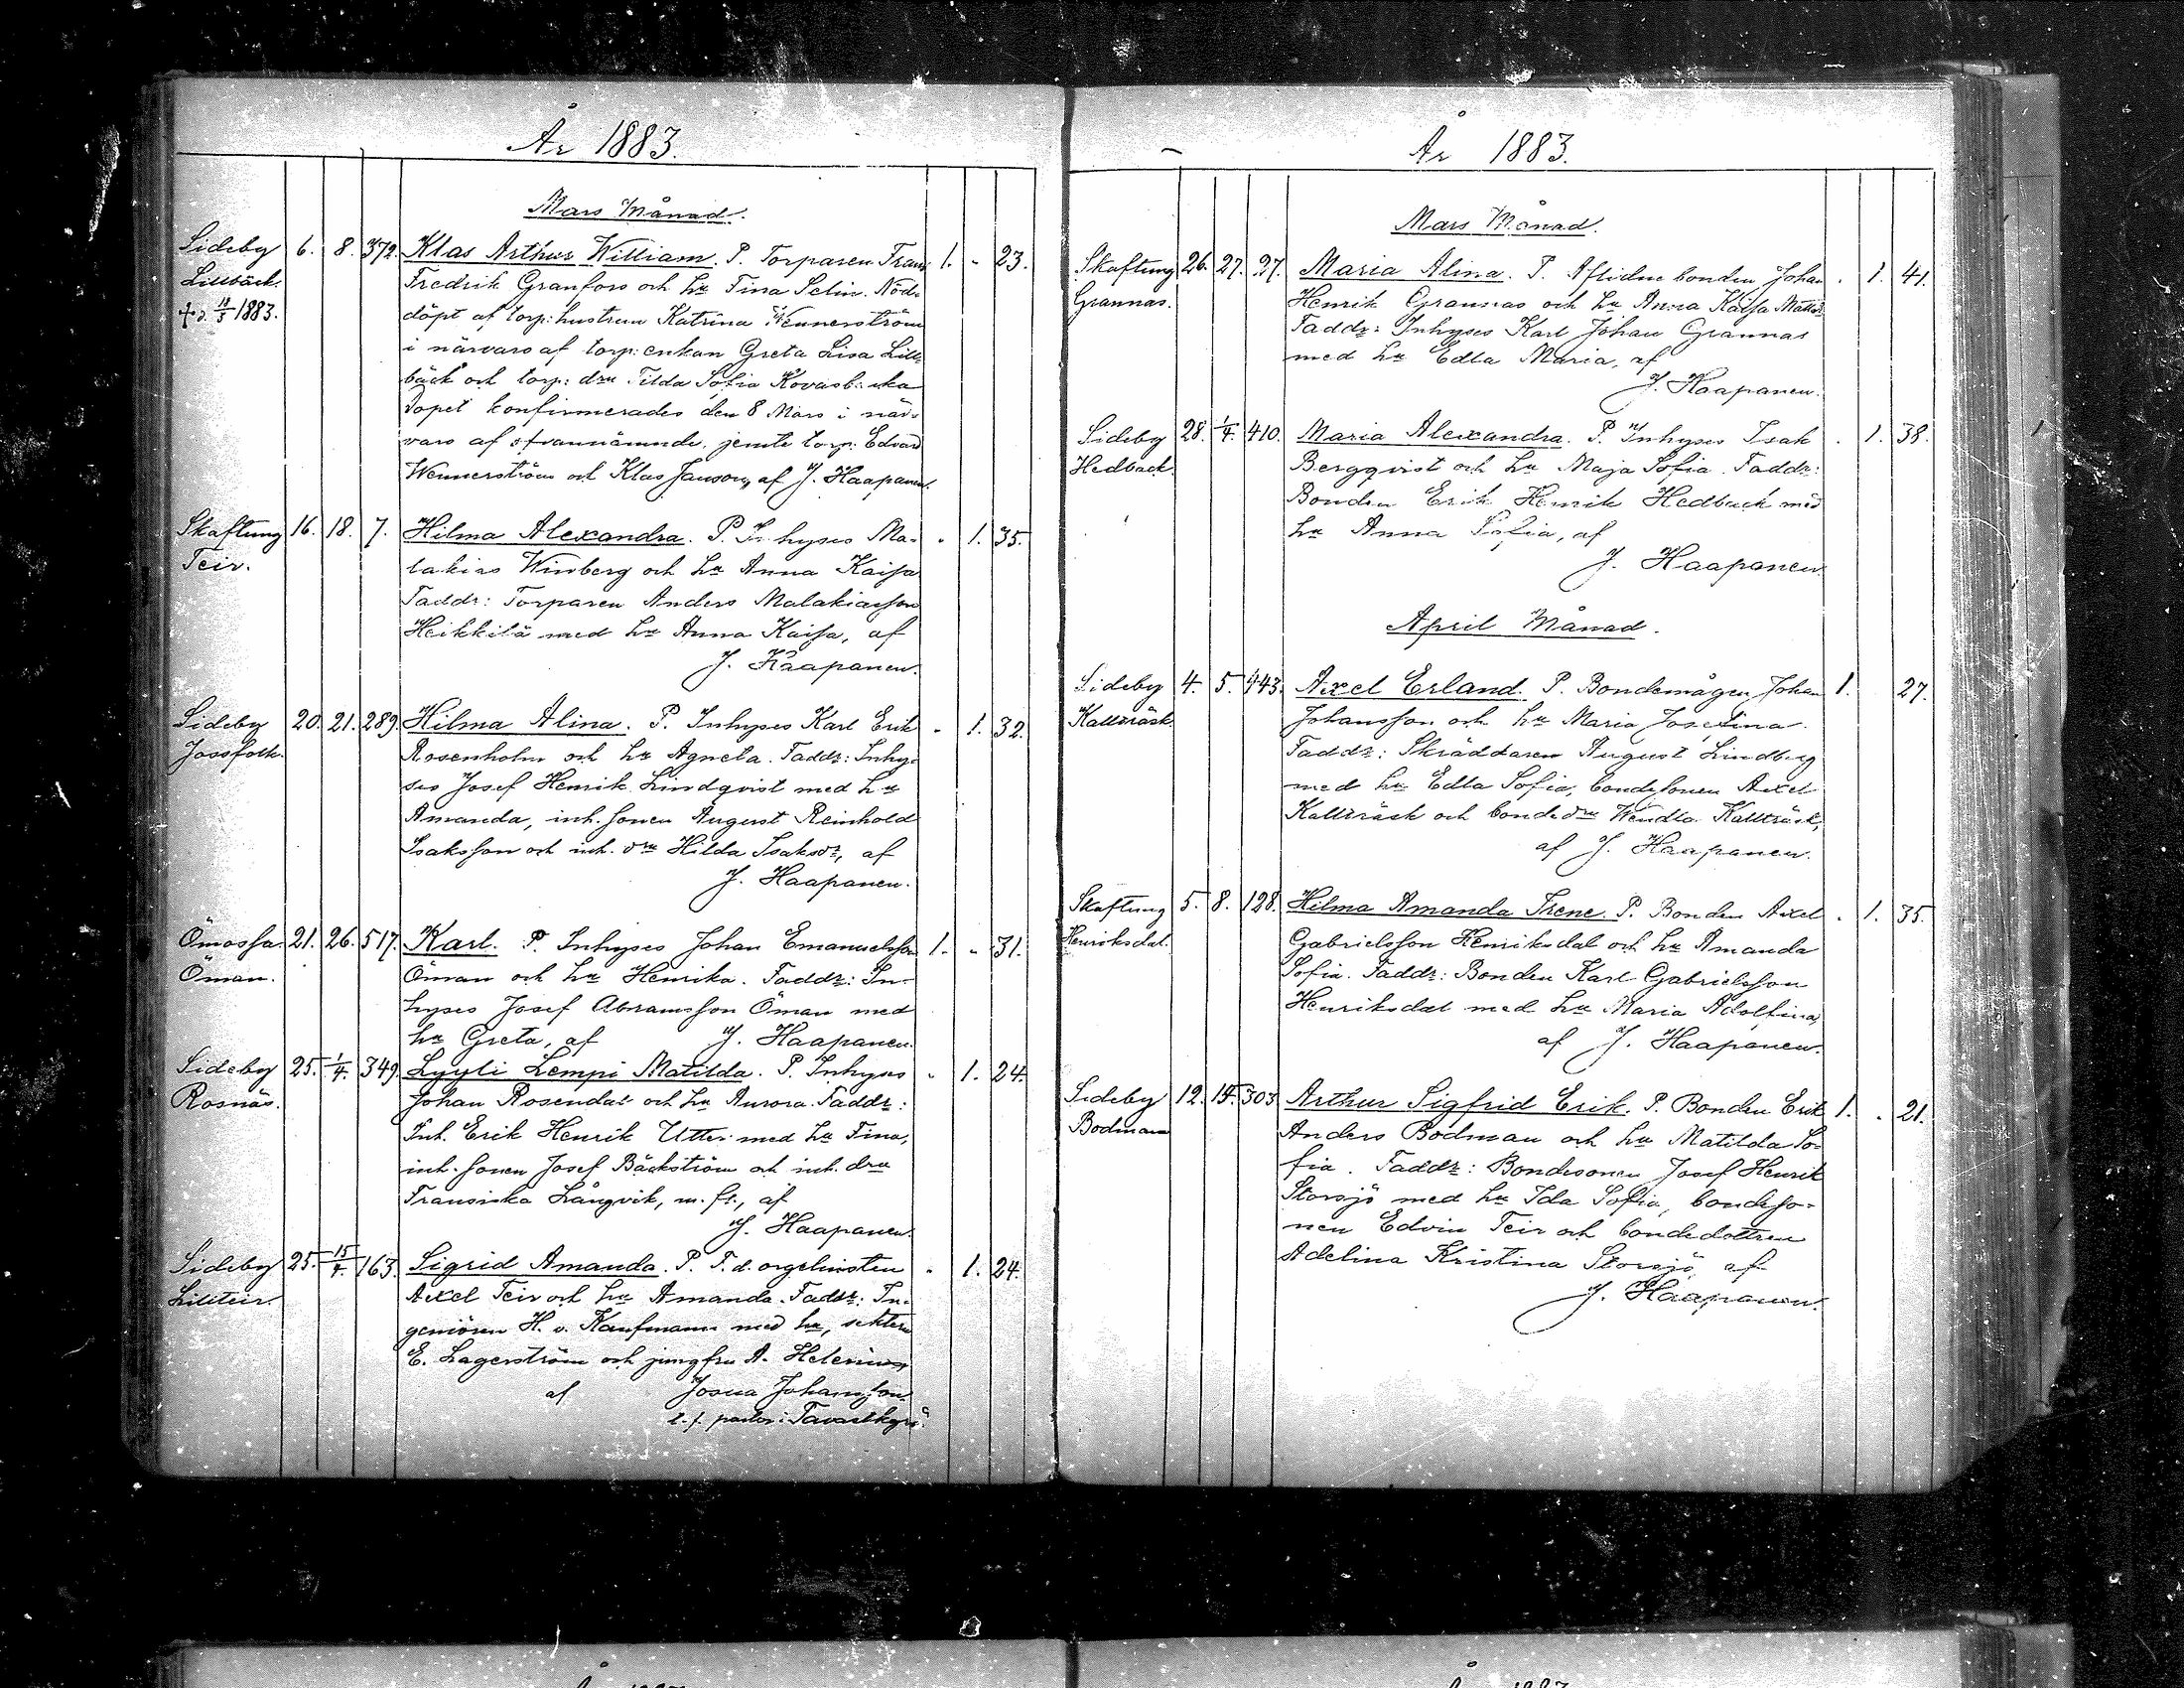 År 1883.
Mars Månad.
Sideby 6. 8. 372. Klas Arthur William. P. Torparen Frans 1. - 23.
Lillbäck. Fredrik Granfors och hu Tina Selin. Nöd-
† d. 1883. döpt af torp: hustrun Katrina Wennerström
i närvaro af torp: enkan Greta Lisa Lill-
bäck och torp: dru Tilda Sofia
Dopet konfirmerades den 8 Mars i när-
varo af ofvannämnde, jemte torp: Edvard
Wennerström och Klas Janson, af J. Haapanen.
Skaftung 16. 18. 7. Hilma Alexandra. P. Inhyses Ma- - 1. 35.
Teir. lakias Winberg och hu Anna Kaisa
Faddr: Torparen Anders Malakiasson
Heikkilä med hu Anna Kaisa, af
J. Haapanen.
Sideby 20. 21. 289. Hilma Alina. P. Inhyses Karl Erik - 1. 32.
Jossfolk. Rosenholm och hu Agneta. Faddr: Inhy-
ses Josef Henrik Lindqvist med hu
Amanda, inh. sonen August Reinhold
Isaksson och inh. dru Hilda Isaksdr, af
J. Haapanen.
Ömossa 21. 26. 517. Karl. P. Inhyses Johan Emanuelsson 1. - 31.
Öman. Öman och hu Henrika. Faddr: In-
hyses Josef Abramsson Öman med
hu Greta, af J. Haapanen.
Sideby 25. 1/4. 349. Lyyli Lempi Matilda. P. Inhyses - 1. 24.
Rosnäs. Johan Rosendal och hu Aurora. Faddr:
Inh. Erik Henrik Utter med hu Tina,
inh. sonen Josef Bäckström och inh. dru
Fransiska Långvik, m. fl., af
J. Haapanen.
Sideby 25. 15/4. 163. Sigrid Amanda. P. F. d. orgelnisten - 1. 24.
Lillteir. Axel Teir och hu Amanda. Faddr: In-
geniören H. v. Kaufmann med hu,
E. Lagerström och jungfru A. Helenius,
af Josua Johansson
t. f. pastor i Tavastkyrö.
År 1883.
Mars Månad.
Skaftung 26. 27. 27. Maria Alina. P. Aflidne bonden Johan - 1. 41.
Grannas. Henrik Grannas och hu Anna Kaisa Mattsdr
Faddr: Inhyses Karl Johan Grannas
med hu Edla Maria, af
J. Haapanen.
Sideby 28. 1/4. 410. Maria Alexandra. P. Inhyses Isak - 1. 38.
Hedback. Bergqvist och hu Maja Sofia. Faddr:
Bonden Erik Henrik Hedback med
hu Anna Sofia, af
J. Haapanen.
April Månad.
Sideby 4. 5. 443. Axel Erland. P. Bondemågen Johan 1. 27.
Kallträsk Johansson och hu Maria Josefina.
Faddr: Skräddaren August Lindberg
med hu Edla Sofia, bondesonen Axel
Kallträsk och bondedru Wendla Kallträsk,
af J. Haapanen.
Skaftung 5. 8. 128. Hilma Amanda Irene. P. Bonden Axel - 1. 35.
Henriksdal. Gabrielsson Henriksdal och hu Amanda
Sofia. Faddr: Bonden Karl Gabrielsson
Henriksdal med hu Maria Adolfina,
af J. Haapanen.
Sideby 12. 303. Arthur Sigfrid Erik. P. Bonden Erik 1. - 21.
Bodman Anders Bodman och hu Matilda So-
fia. Faddr: Bondesonen Josef Henrik
Storsjö med hu Ida Sofia, bondeso-
nen Edvin Teir och bondedottren
Adelina Kristina Storsjö, af
J. Haapanen.